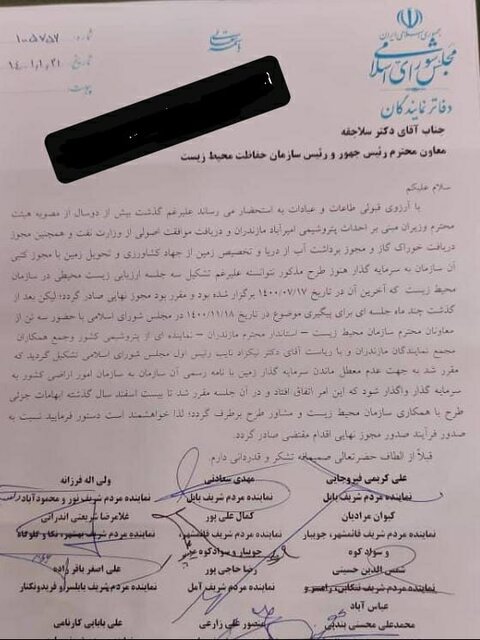 جمهوری اسلامی ایران
مجلس شورای اسلامی
دفاتر نمایندگان
شماره
تاریخ
پیوست
جناب آقای دکتر سلاجقه
معاون محترم رئیس جهور و رئیس سازمان حفاظت محیط زیست
سلام علیکم
با آرزوی قبولی طاعات و عبادات به استحضار می رساند علیرغم گذشت بیش از دوسال از مصوبه هیئت
محترم وزیران مبنی بر احداث پتروشیمی امیرآباد مازندران و دریافت موافقت اصولی از وزارت نفت و همچنین مجوز
دریافت خوراک گاز و مجوز برداشت آب از دریا و تخصیص زمین از جهاد کشاورزی و تحویل زمین با مجوز کتبی
آن سازمان به سرمایه گذار هنوز طرح مذکور نتوانسته علیرغم تشکیل سه جلسه ارزیابی زیست محیطی در سازمان
محیط زیست که آخرین آن در تاریخ ۱۴۰۰/۰۷/۱۷ برگزار شده بود و مقرر بود مجوز نهایی صادر گردد؛ لیکن بعد از
گذشت چند ماه جلسه ای برای پیگیری موضوع در تاریخ ۱۴۰۰/۱۱/۱۸ در مجلس شورای اسلامی با حضور سه تن از
معاونان محترم سازمان محیط زیست – استاندار محترم مازندران – نماینده ای از پتروشیمی کشور وجمع همکاران
مجمع نمایندگان مازندران و با ریاست آقای دکتر نیکزاد نایب رئیس اول مجلس شورای اسلامی تشکیل گردید که
مقرر شد به جهت عدم معطل ماندن سرمایه گذار زمین با نامه رسمی آن سازمان به سازمان امور اراضی کشور به
سرمایه گذار واگذار شود که این امر اتفاق افتاد و در آن جلسه مقرر شد تا بیست اسفند سال گذشته ابهامات جزئی
طرح با همکاری سازمان محیط زیست و مشاور طرح برطرف گردد؛ لذا خواهشمند است دستور فرمایید نسبت به
صدور فرآیند صدور مجوز نهایی اقدام مقتضی صادر گردد.
قبلاً از الطاف حضرتعالی صمیمانه تشکر و قدردانی دارم.
علی کریمی فیروجایی
مهدی سعادتی
ولی اله فرزانه
نماینده مردم شریف بابل
نماینده مردم شریف بابل
نماینده مردم شریف نور و محمودآباد
کیوان مرادیان
کمال علی پور
غلامرضا شریعتی اندراتی
نماینده مردم شریف قائمشهر، جویبار
نماینده مردم شریف قائمشهر،
نماینده مردم شریف بهشهر، نکا و گلوگاه
و سواد کوه
جویبار و سوادکوه
شمس الدین حسینی
رضا حاجی پور
علی اصغر باقرزاده
نماینده مردم شریف تنکابن، رامسر و
نماینده مردم شریف آمل
نماینده مردم شریف بابلسر و فریدونکنار
عباس آباد
محمدعلی محسنی بندپی
منصور علی زارعی
علی بابایی کارنامی